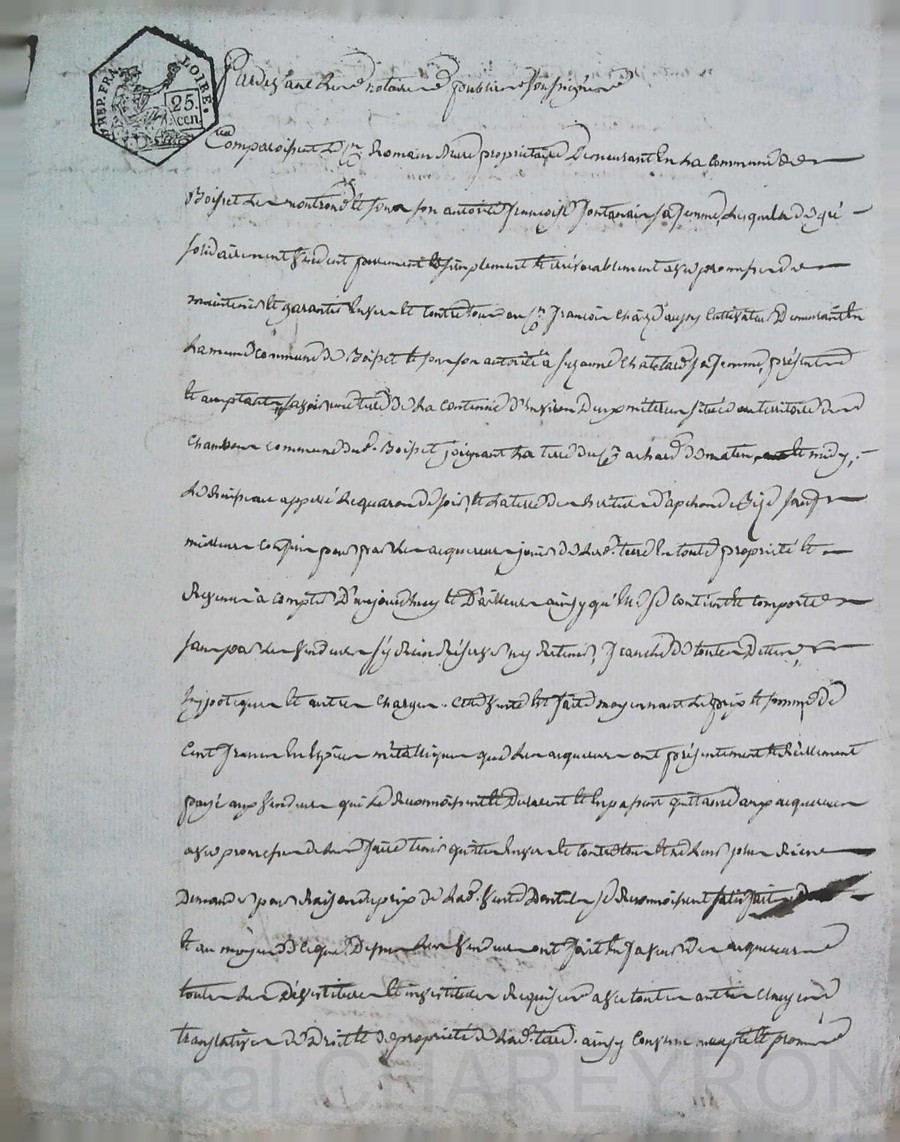 REP. FRA. LOIRE.
25. cen.
Pardevant les notaires publics soussignés
Comparoissent le Cn Romain propriétaire demeurant en la commune de
Boisset les montrond et sous son autorité françoise fontanais sa femme, lesquels de gré
solidairement vendent purement et simplement et irrévocablement avec promesse de
maintenir et garantir envers et contre tous au Cn françois cultivateur demeurant en
la meme commune de Boisset et sous son autorité à Suzanne Chatelard sa femme, présents
et acceptants, savoir une terre de la contenue d'environ deux méterées située au territoire de
Chambon commune dud. Boisset joignant la terre du Cn achard de matin et midy,
le ruisseau appellé de soir, et la terre des héritiers d'apchon de Bize sauf
meilleurs confins pour par les acquereurs jouir de lad. terre en toute propriété et
Revenus à compter d'aujourd'huy et d'ailleurs ainsy qu'elle se contient et comporte
sans par les vendeurs s'y rien réserver ny retenir, franche de toutes dettes,
hypoteques et autres charges. Cette vente est faite moyennant le prix et somme de
Cent francs en especes métalliques que les acquereurs ont présentement et réellement
payé aux vendeurs qui le reconnoissent et en passent quittance aux acquereurs
avec promesse de les faire tenir quittes envers et contre tous et ne leur plus rien
demander pour raison du prix de lad. vente dont ils se reconnoissent satisfaits
et au moyen de ce que dessus les vendeurs ont fait en faveur des acquereurs
toutes les dévestitures et investitures requises avec toutes autres clauses
translatives de droit et de propriété de lad. terre. ainsy convenu accepté et promis
Pascal CHAREYRON